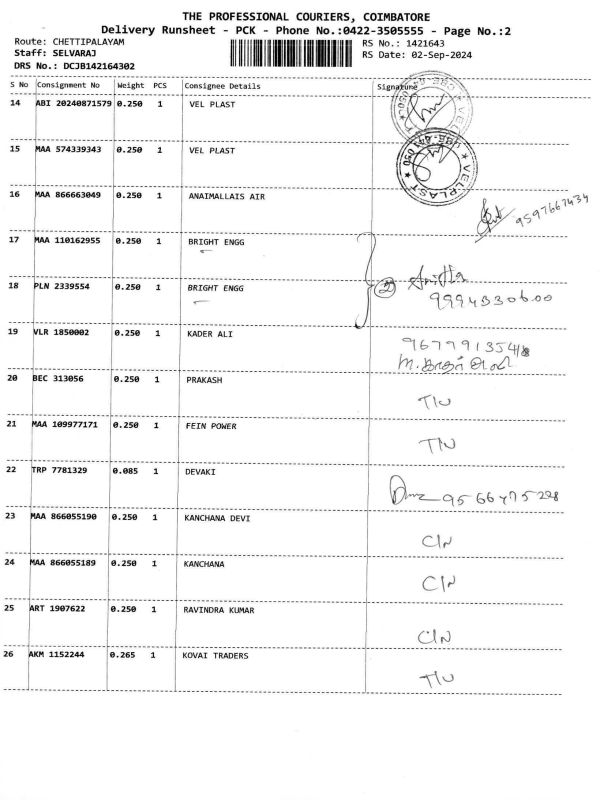 THE PROFESSIONAL COURIERS, COIMBATORE
Delivery Runsheet - PCK - Phone No.:0422-3505555 - Page No.:2
Route: CHETTIPALAYAM
RS No.: 1421643
Staff: SELVARAJ
RS Date: 02-Sep-2024
DRS No.: DCJB142164302
S No Consignment No Weight PCS Consignee Details Signature
14 ABI 20240871579 0.250 1 VEL PLAST
15 MAA 574339343 0.250 1 VEL PLAST
VELPLAST
16 MAA 866663049 0.250 1 ANAIMALLAIS AIR
9597667434
17 MAA 110162955 0.250 1 BRIGHT ENGG
18 PLN 2339554 0.250 1 BRIGHT ENGG
2 Anitha
9994330600
19 VLR 1850002 0.250 1 KADER ALI
20 BEC 313056 0.250 1 PRAKASH
21 MAA 109977171 0.250 1 FEIN POWER
22 TRP 7781329 0.085 1 DEVAKI
9566475228
23 MAA 866055190 0.250 1 KANCHANA DEVI
C/N
24 MAA 866055189 0.250 1 KANCHANA
C/N
25 ART 1907622 0.250 1 RAVINDRA KUMAR
C/N
26 AKM 1152244 0.265 1 KOVAI TRADERS